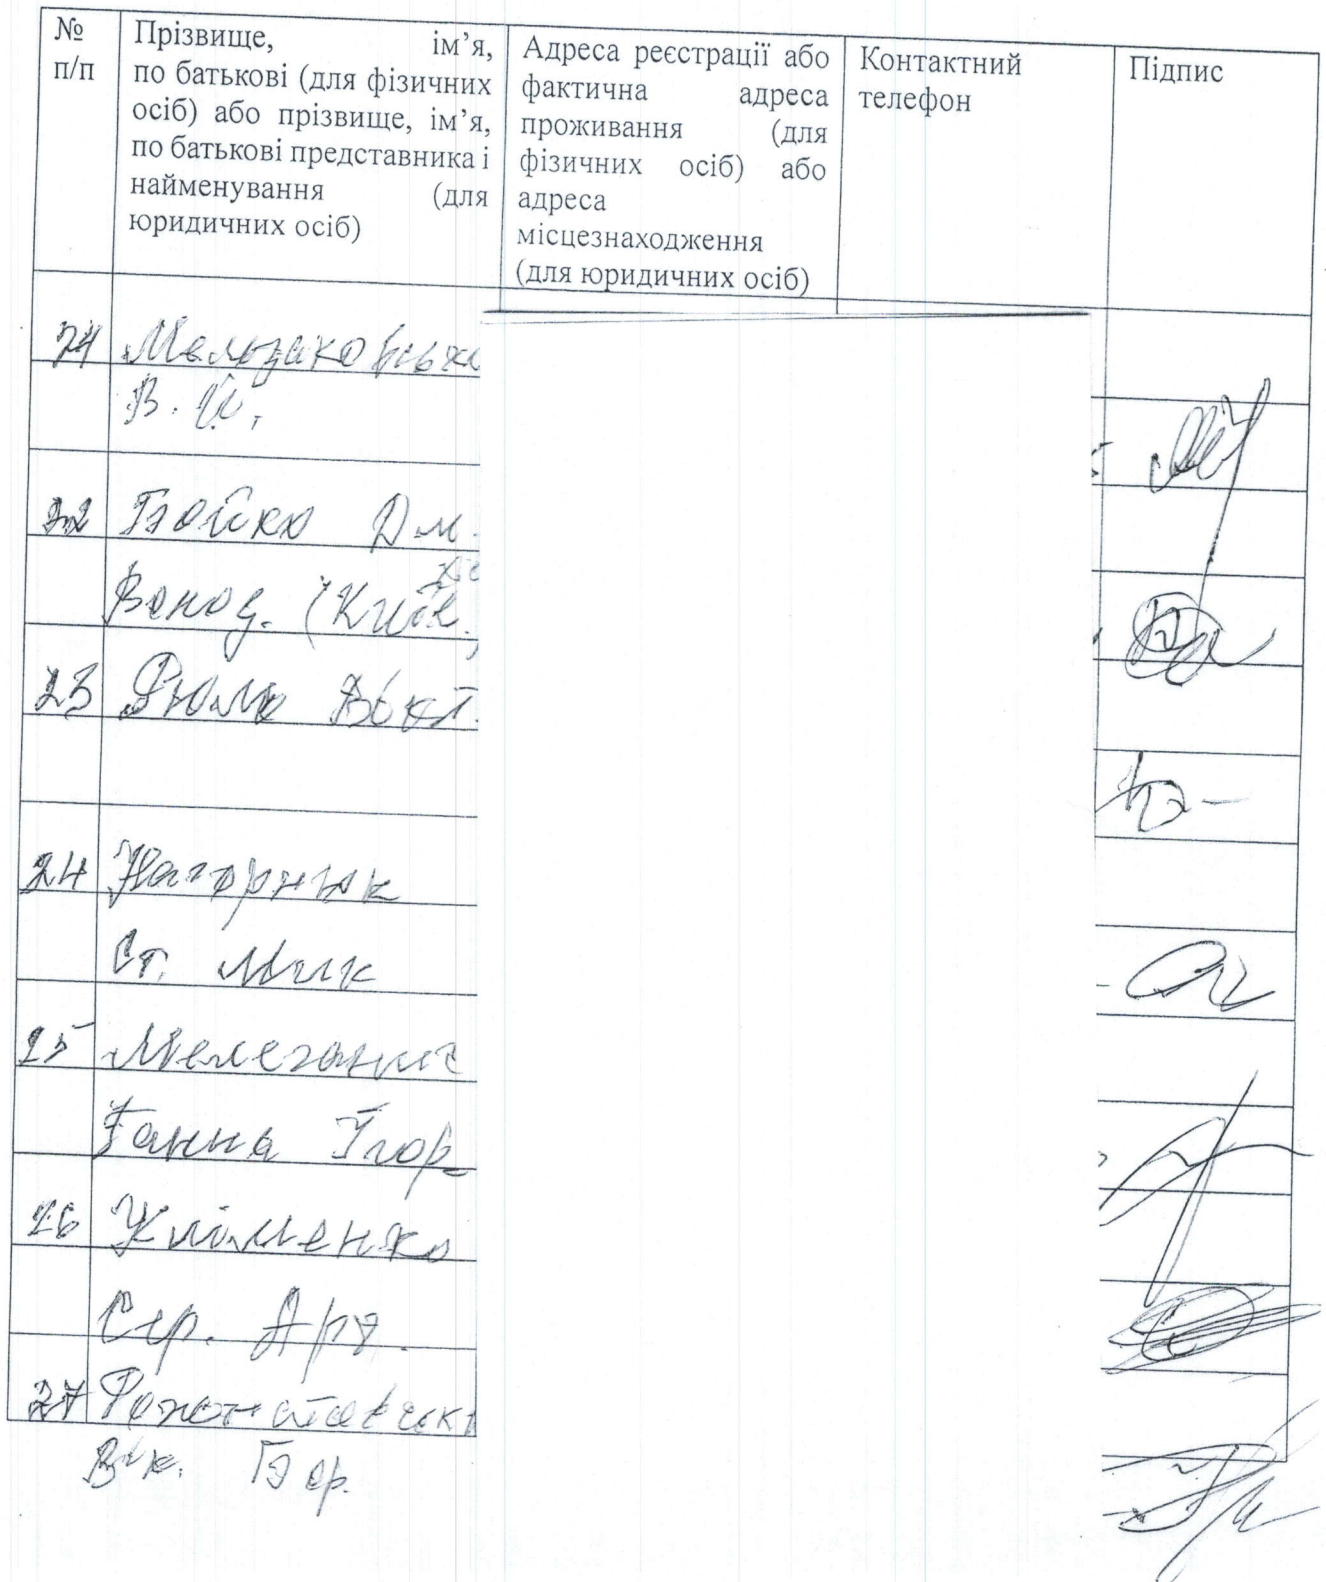 № п/п
Прізвище, ім’я,
по батькові (для фізичних
осіб) або прізвище, ім’я,
по батькові представника і
найменування (для
юридичних осіб)
Адреса реєстрації або
фактична адреса
проживання (для
фізичних осіб) або
адреса
місцезнаходження
(для юридичних осіб)
Контактний
телефон
Підпис
В. Й.
22 Бойко Дм.
23 Вікт.
24 Нагорнюк
Ст. Мик
25 Мелеганич
Ганна Ігор
26 Кліменко
Сер. Арт.
27
Вік. Бор.